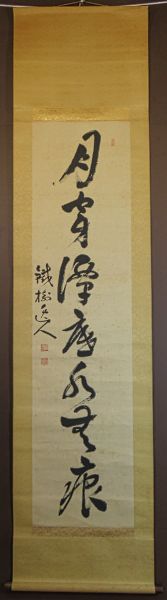 月穿潭底水無痕
鐵樹逸人